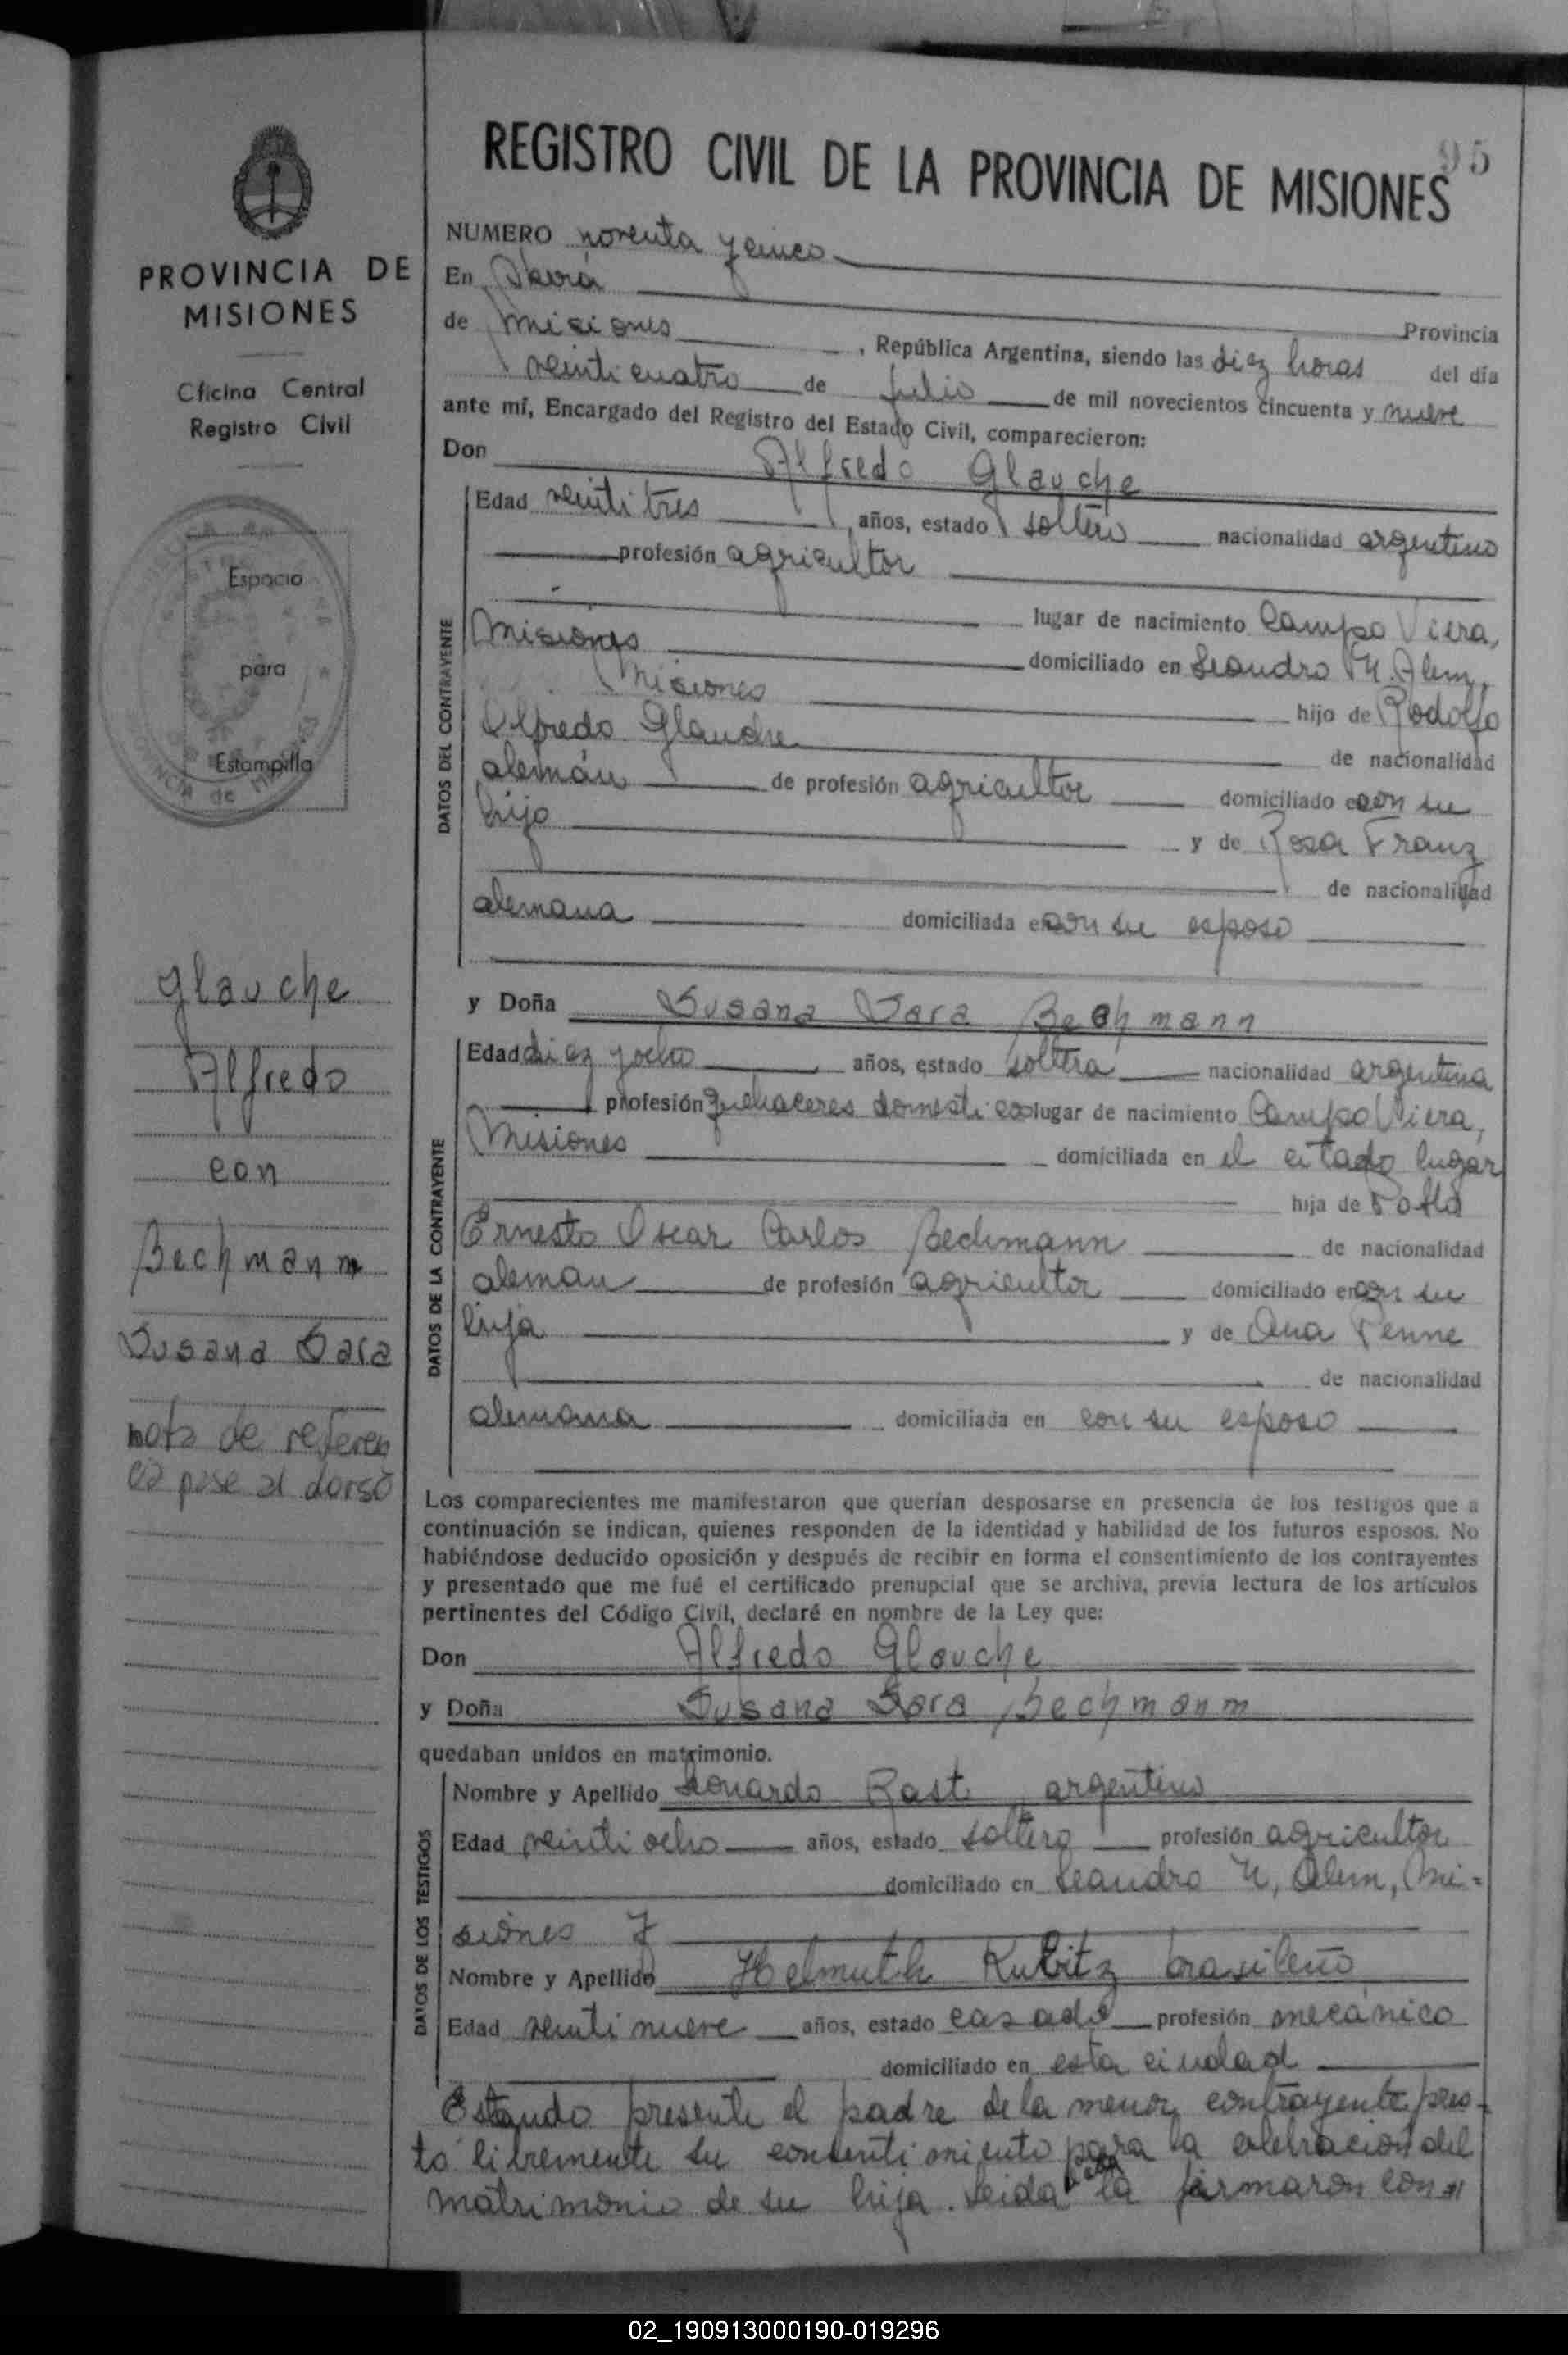 95
REGISTRO CIVIL DE LA PROVINCIA DE MISIONES
PROVINCIA DE
MISIONES
Oficina Central
Registro Civil
Espacio
para
Estampilla
Glauche
Alfredo
con
Bechmann
Susana Sara
nota de referen
cia pase al dorso
NUMERO noventa y cinco
En Oberá
de Misiones Provincia
, República Argentina, siendo las diez horas del día
veinticuatro de julio de mil novecientos cincuenta y nueve
ante mí, Encargado del Registro del Estado Civil, comparecieron:
Don Alfredo Glauche
DATOS DEL CONTRAYENTE
Edad veintitres años, estado soltero nacionalidad argentino
profesión agricultor
lugar de nacimiento Campo Viera,
Misiones domiciliado en Leandro N. Alem,
Misiones hijo de Rodolfo
Alfredo Glauche de nacionalidad
alemán de profesión agricultor domiciliado con su
hijo y de Rosa Franz
de nacionalidad
alemana domiciliada con su esposo
y Doña Susana Sara Bechmann
DATOS DE LA CONTRAYENTE
Edad diez y ocho años, estado soltera nacionalidad argentina
profesión quehaceres domesticos lugar de nacimiento Campo Viera,
Misiones domiciliada en el citado lugar
hija de
Ernesto Oscar Carlos Bechmann de nacionalidad
aleman de profesión agricultor domiciliado en con su
hija y de Ana Penne
de nacionalidad
alemana domiciliada en con su esposo
Los comparecientes me manifestaron que querían desposarse en presencia de los testigos que a
continuación se indican, quienes responden de la identidad y habilidad de los futuros esposos. No
habiéndose deducido oposición y después de recibir en forma el consentimiento de los contrayentes
y presentado que me fué el certificado prenupcial que se archiva, previa lectura de los artículos
pertinentes del Código Civil, declaré en nombre de la Ley que:
Don Alfredo Glauche
y Doña Susana Sara Bechmann
quedaban unidos en matrimonio.
DATOS DE LOS TESTIGOS
Nombre y Apellido Leonardo Rast, argentino
Edad veintiocho años, estado soltero profesión agricultor
domiciliado en Leandro N. Alem, Mi-
siones y
Nombre y Apellido Helmuth Kubitz brasileño
Edad veintinueve años, estado casado profesión mecánico
domiciliado en esta ciudad
Estando presente el padre de la menor contrayente pres-
tó libremente su consentimiento para la celebración del
matrimonio de su hija. Leida acta la firmaron con=
02_190913000190-019296